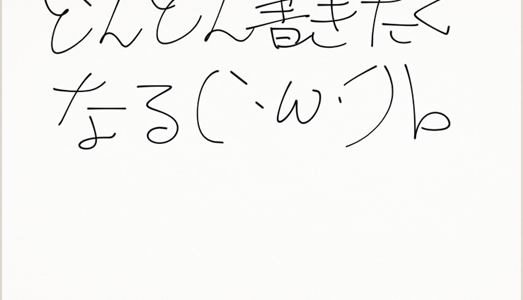 どんどん書きたく
なる(｀･ω･´)b